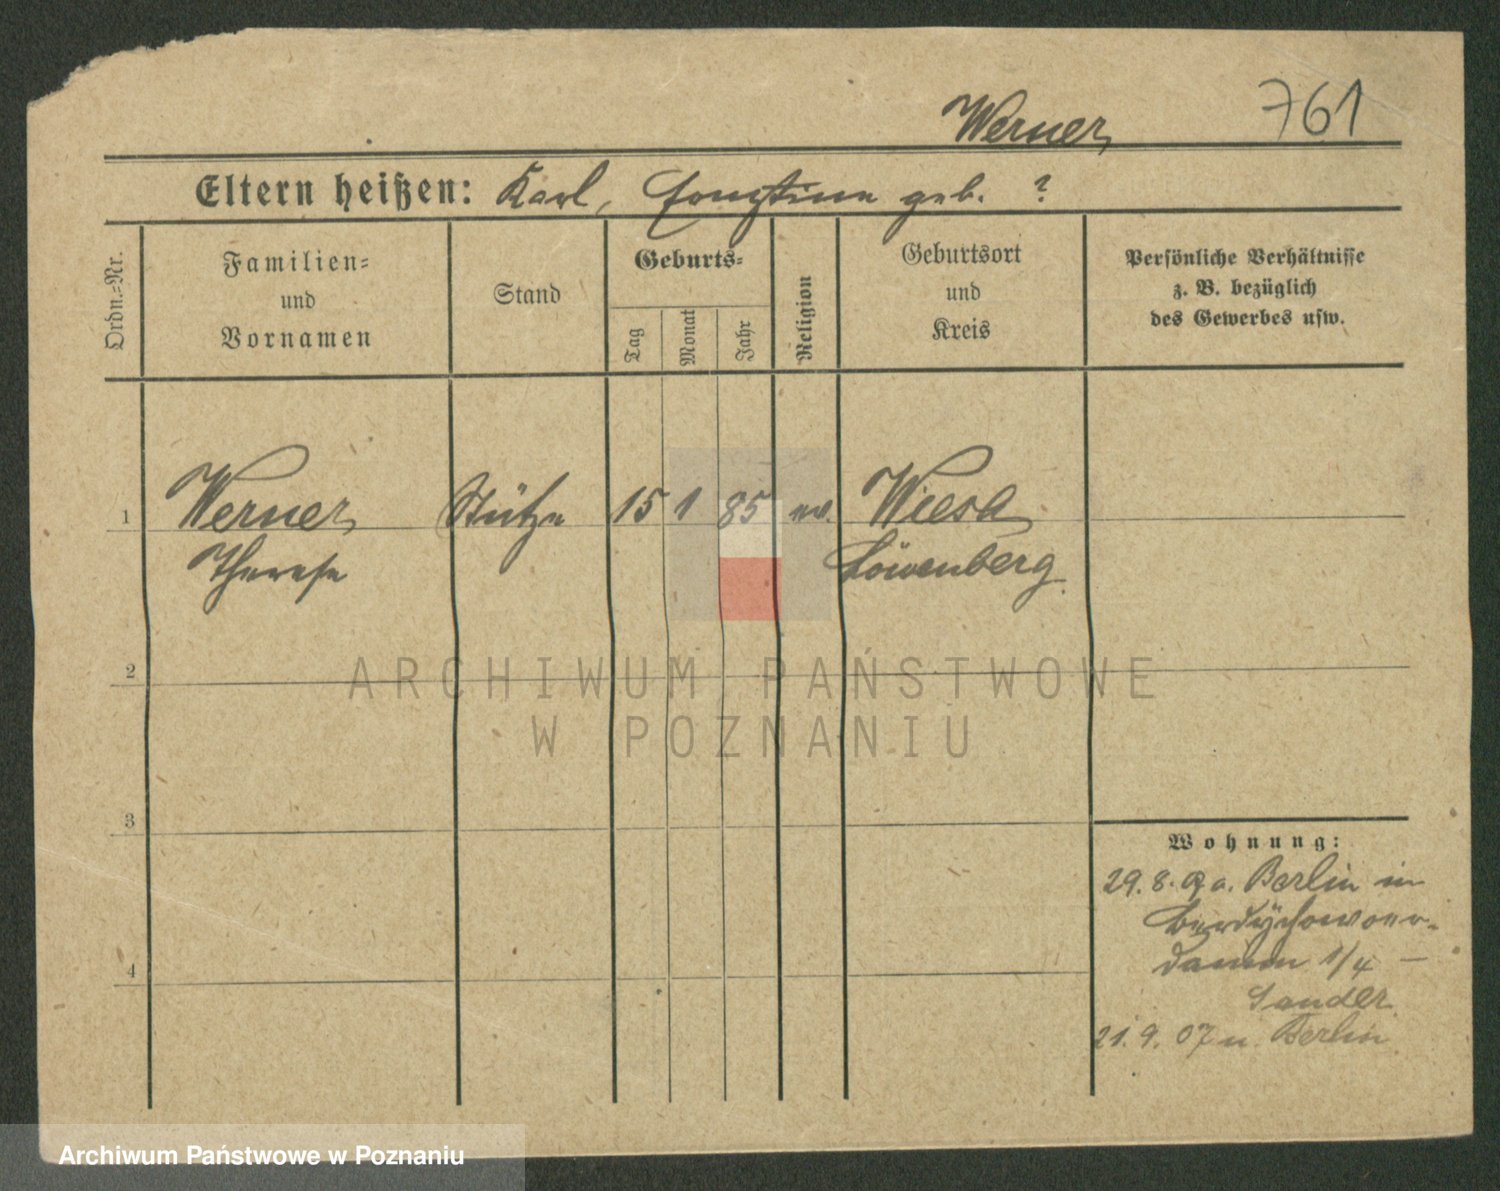 761
Werner
Eltern heißen: Karl, Ernstine geb. ?
Ordn.=Nr.
Familien=
und
Vornamen
Stand
Geburts=
Tag
Monat
Jahr
Religion
Geburtsort
und
Kreis
Persönliche Verhältnisse
z. B. bezüglich
des Gewerbes usw.
1 Werner Stütze 15 1 85 ev. Wiesa
Therese Löwenberg
2
3
4
Wohnung:
29.8. a. Berlin in
Berdychowoer-
damm 1/4 —
Sander
21.9.07 n. Berlin
ARCHIWUM PAŃSTWOWE
W POZNANIU
Archiwum Państwowe w Poznaniu